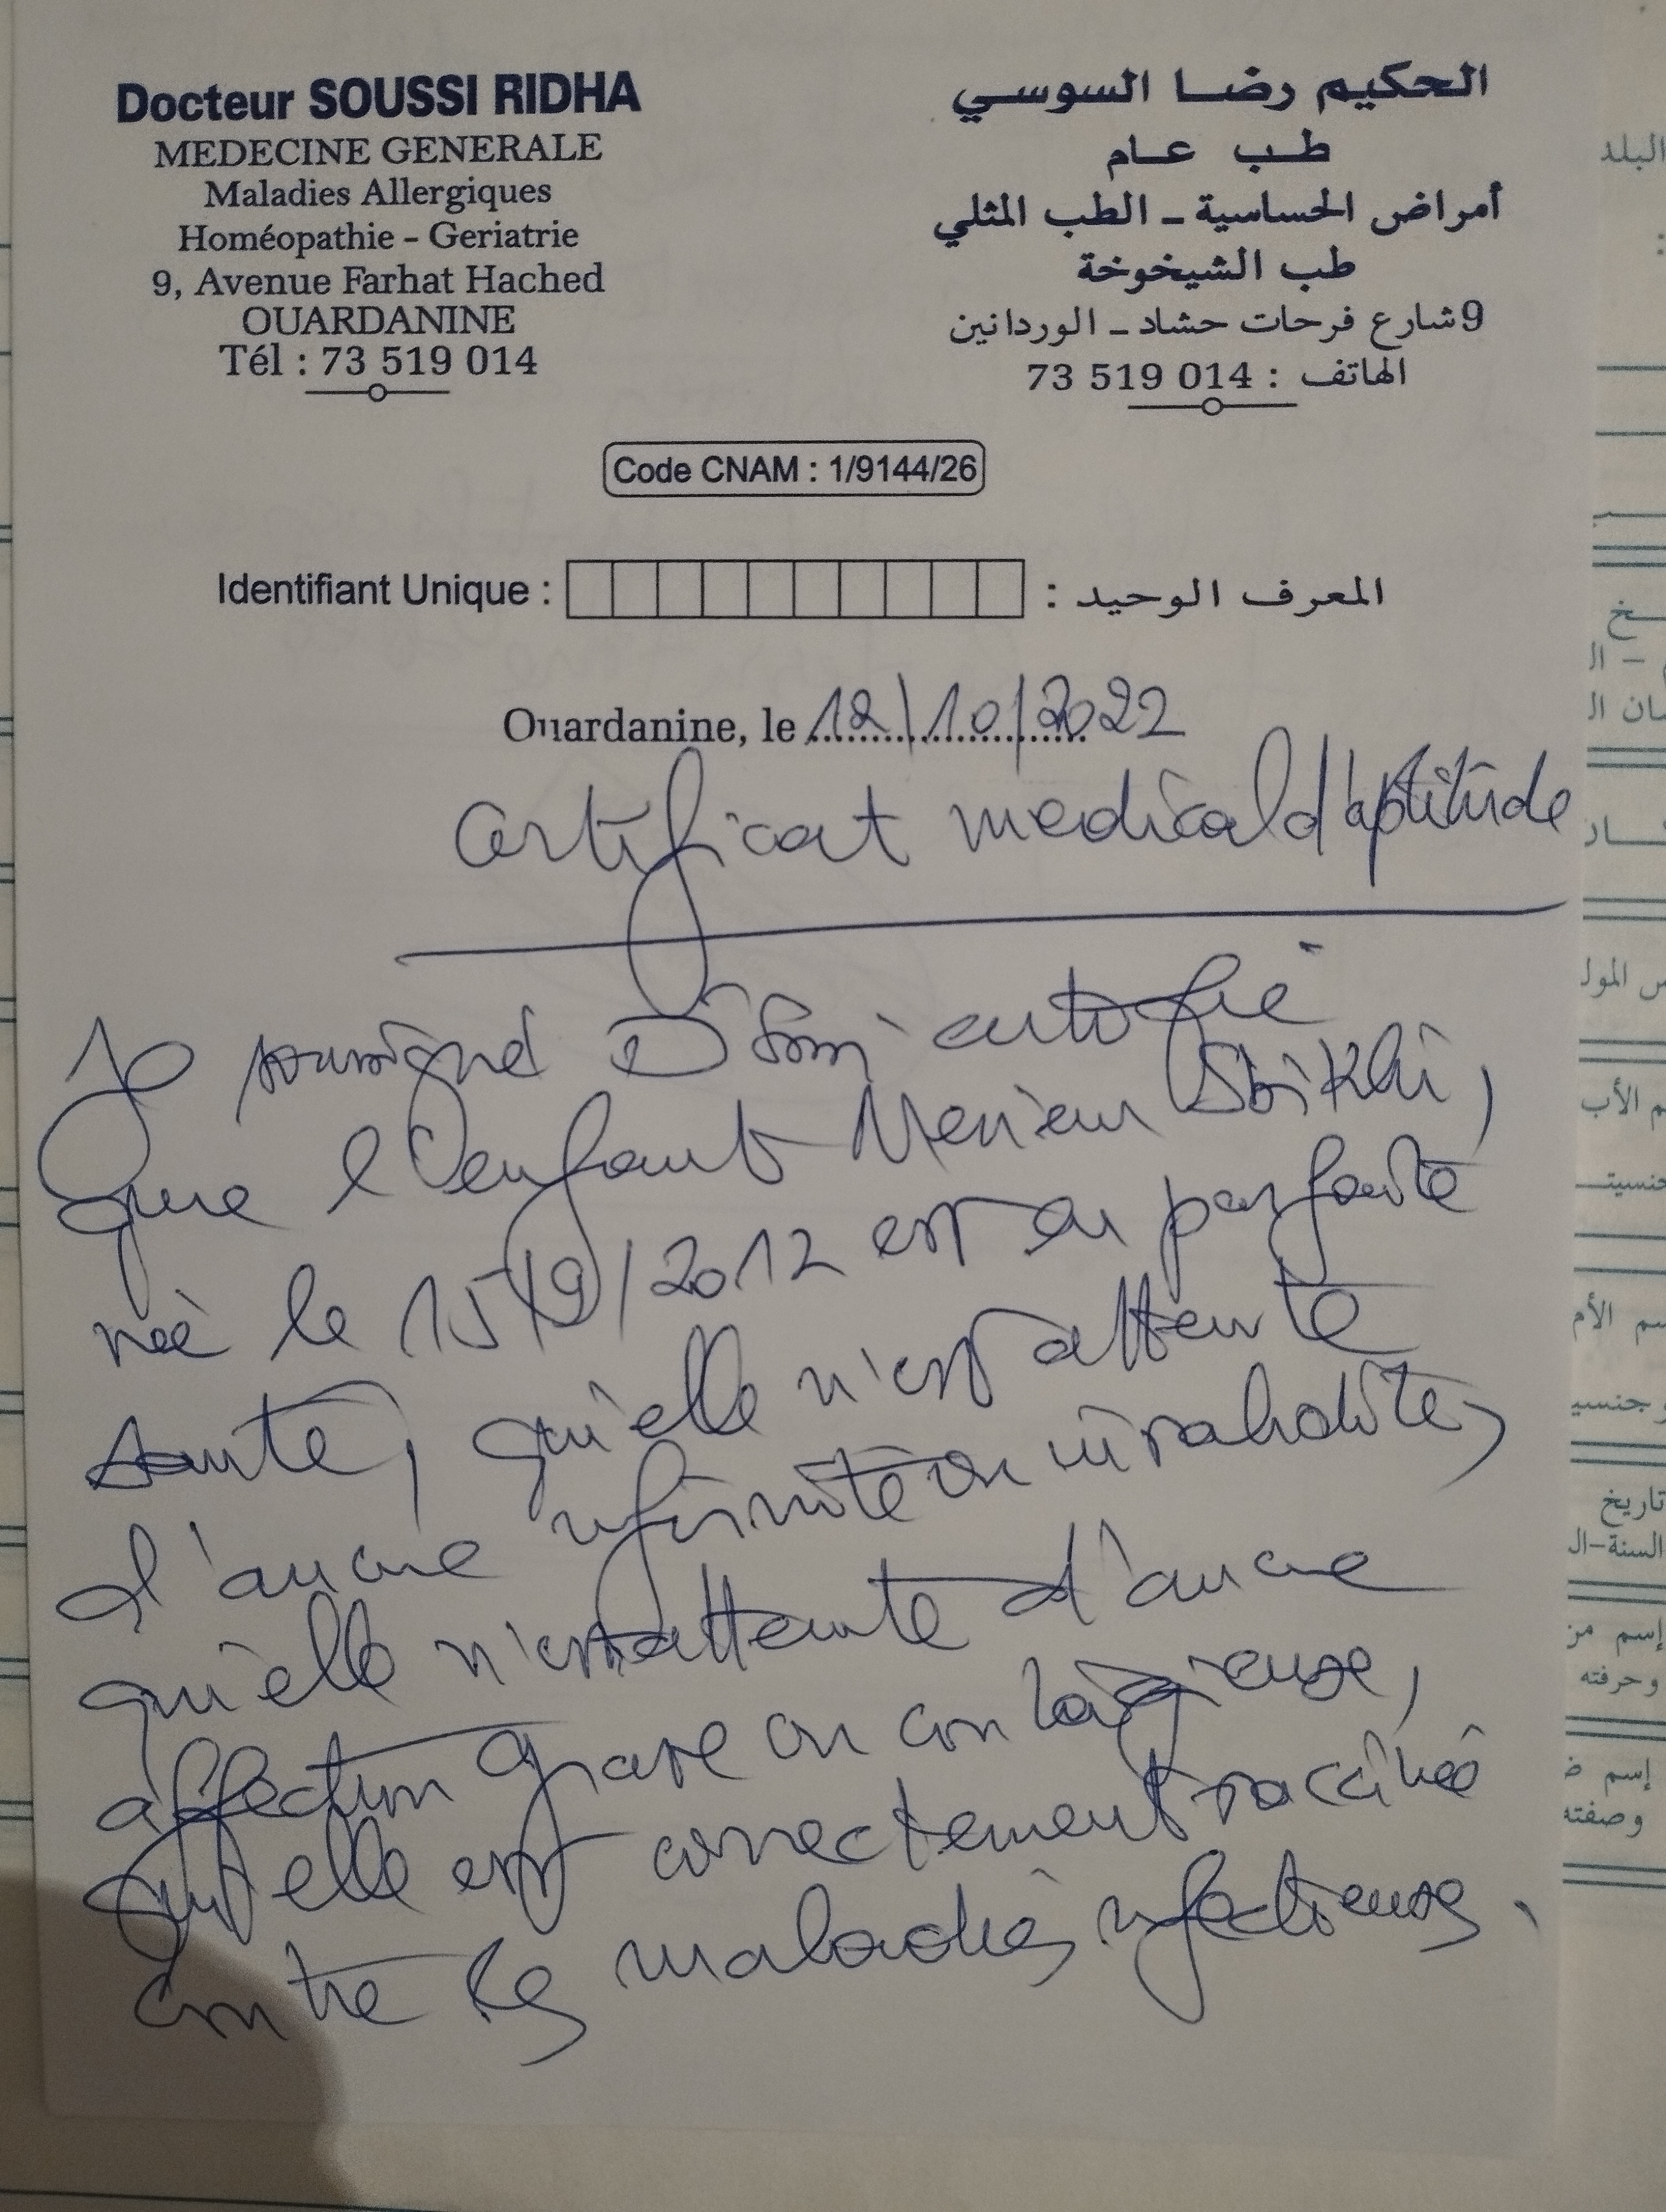 Docteur SOUSSI RIDHA
MEDECINE GENERALE
Maladies Allergiques
Homéopathie - Geriatrie
9, Avenue Farhat Hached
OUARDANINE
Tél : 73 519 014
الحكيم رضا السوسي
طب عام
أمراض الحساسية - الطب المثلي
طب الشيخوخة
9 شارع فرحات حشاد - الوردانين
الهاتف : 014 519 73
Code CNAM : 1/9144/26
Identifiant Unique : المعرف الوحيد :
Ouardanine, le 12/10/2022
Certificat medical d'aptitude
Je soussigné Dr certifie
que l'enfant Meriem Sbikhi,
née le 15/9/2012 est en parfaite
santé, qu'elle n'est atteinte
d'aucune infirmité ou invalidité,
qu'elle n'est atteinte d'aucune
affection grave ou contagieuse,
qu'elle est correctement vaccinée
contre les maladies infectieuses.
البلد
تاريخ
وحرفته
وصفته